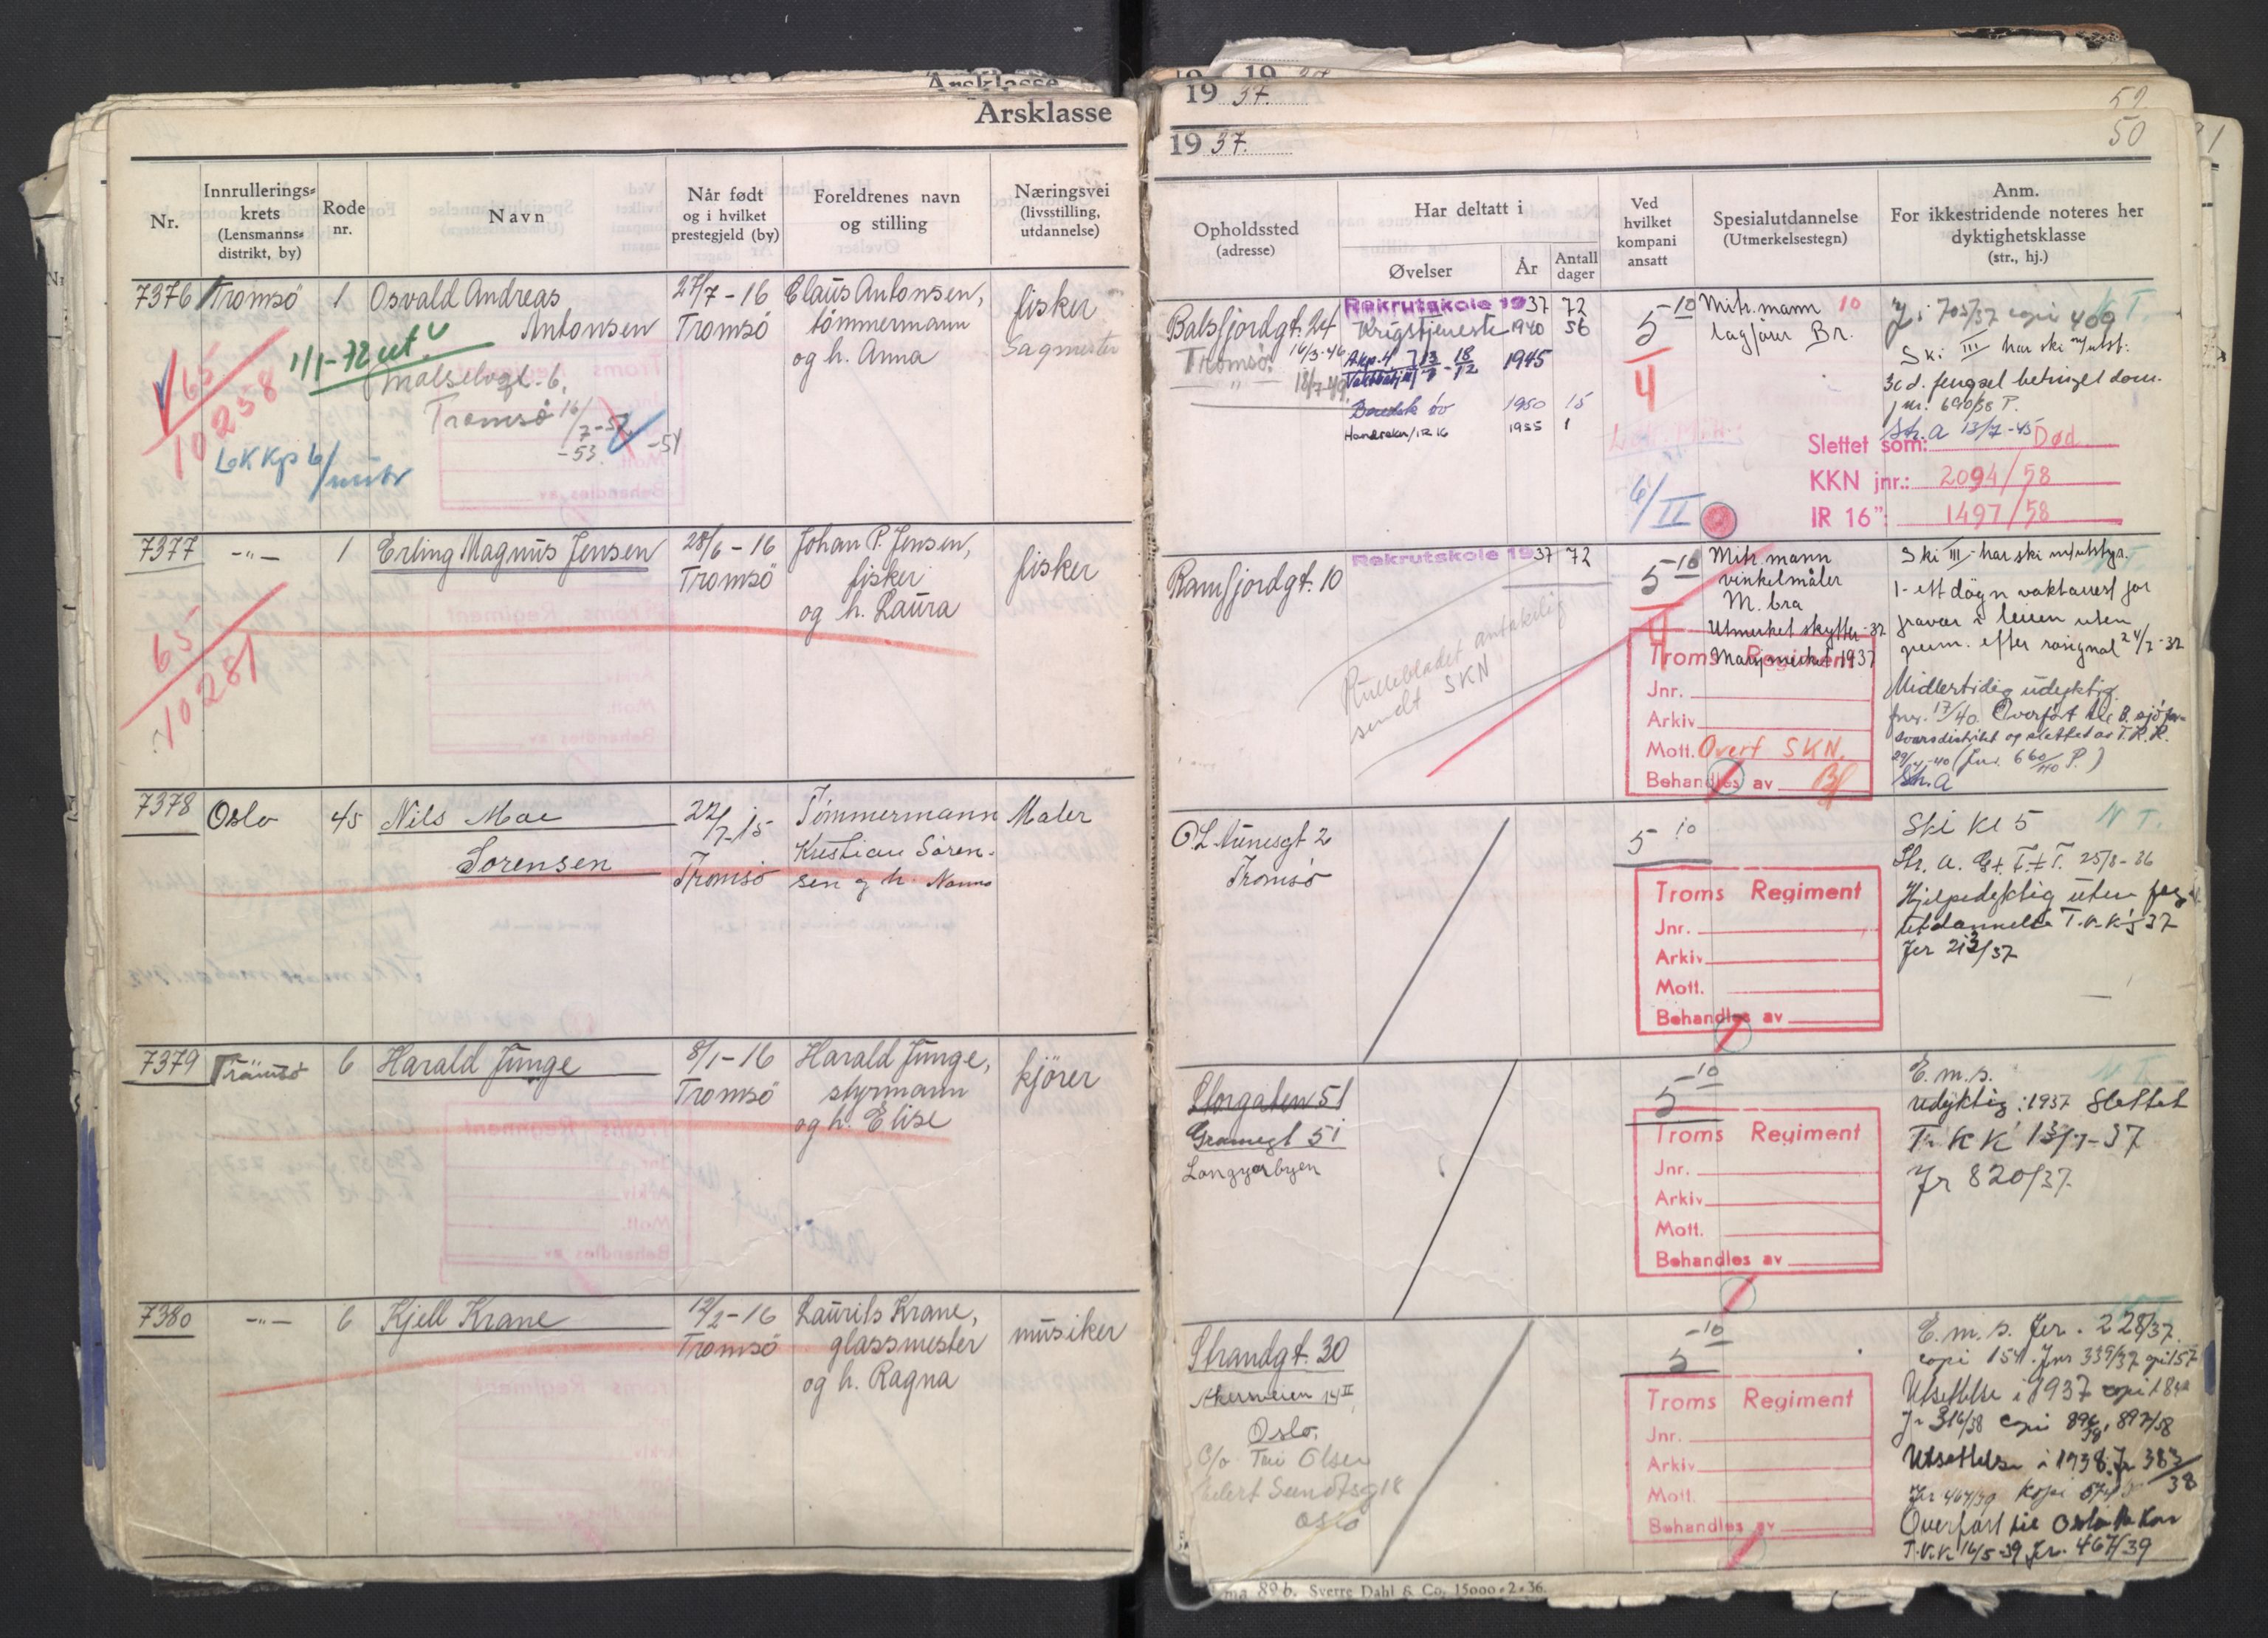 Årsklasse
Årsklasse
Nr.
Innrullerings-
krets
(Lensmanns-
distrikt, by)
Rode
nr.
Navn
Når født
og i hvilket
prestegjeld (by)
Foreldrenes navn
og stilling
Næringsvei
(livsstilling,
utdannelse)
7376 Tromsö 1 Osvald Andreas
Antonsen
27/7-16
Tromsö
Claus Antonsen,
tömmermann
og h. Anna
fisker
Sagmester
65
10258
1/1-72 ut.
Målselvgt. 6,
Tromsø 16/7-52
-53
-54
LOK Kp 6/
7377 -"- 1 Erling Magnus Jensen
28/6-16
Tromsö
Johan P. Jensen,
fisker
og h. Laura
fisker
65
10281
7378 Oslo 45 Nils Moe
Sorensen
22/7-15
Tromsø
Tömmermann
Kristian Sören-
sen og h. Nanna
Maler
7379 Tromsö 6 Harald Junge
8/1-16
Tromsö
Harald Junge,
styrmann
og h. Elise
kjörer
7380 -"- 6 Kjell Krane
12/2-16
Tromsö
Laurits Krane,
glassmester
og h. Ragna
musiker
19 37.
52
19 37.
50
Opholdssted
(adresse)
Har deltatt i
Øvelser
År
Antall
dager
Ved
hvilket
kompani
ansatt
Spesialutdannelse
(Utmerkelsestegn)
Anm.
For ikkestridende noteres her
dyktighetsklasse
(str., hj.)
Balsfjordgt. 24
Tromsö. 16/3-46
-"- 18/7-49
Rekrutskole 1937 72
Krigstjeneste 1940 56
1945
1950 15
1955 1
5-10
4
6/II
Mitr. mann 10
lagförer Br.
J. 703/37 copi 409
Ski III har ski m/utst.
30 d. fengsel betinget dom.
jnr. 690/38 P.
Str. A 13/7-45
Slettet som: Død
KKN jnr.: 2094/58
IR 16": 1497/58
Ramfjordgt. 10
Rekrutskole 1937 72
Rullebladet antakelig
sendt SKN
5-10
4
Mitr. mann
vinkelmåler
M. bra
Utmerket skytter-37
Marsjmerket 1937
Troms Regiment
Jnr.
Arkiv
Mott. Overf SKN.
Behandles av
Ski III har ski m/utstyr.
1- ett dögn vaktarrest for
fravær i leiren uten
perm. efter rosignal 24/7-37
Midlertidig udyktig
Overført til B. sjöfor-
svarsdistrikt og slettet av T.R.R.
29/4-40 (Jnr. 660/40 P.)
Str. A
O.L. Aunesgt 2
Tromsø
5 10
Troms Regiment
Jnr.
Arkiv
Mott.
Behandles av
Ski Kl 5
Str. A. 25/8-36
Hjelpedyktig uten
utdannelse
Jr 213/37
Storgaten 51
Grønnegt 51
Longyearbyen
5-10
Troms Regiment
Jnr.
Arkiv
Mott.
Behandles av
E.m.s.
Udyktig: 1937 Slettet
T. K K 13/7-37
Jr 820/37.
Strandgt. 30
Akersveien 14 II
Oslo,
C/o Olsen
Eilert Sundtsg 18
Oslo
5-10
Troms Regiment
Jnr.
Arkiv
Mott.
Behandles av
E.m.s. Jr. 228/37.
copi 154. Jnr 339/37 copi 157
Utsettelse i 1937 copi
Jr 316/38 copi 896/38, 897/38
Utsettelse i 1938. Jr 383/38
Jr 467/39 kopi
Overført til Oslo
T.K.K. 16/5-39 Jr. 467/39
89 b. Sverre Dahl & Co. 15000-2-36.